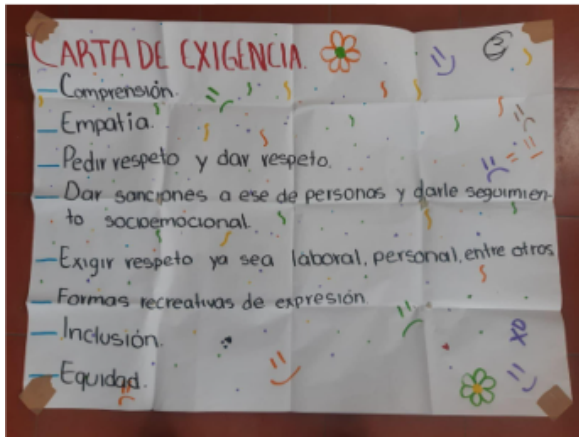 CARTA DE EXIGENCIA.
– Comprensión.
– Empatía.
– Pedir respeto y dar respeto.
– Dar sanciones a ese de personas y darle seguimien-
to socioemocional.
– Exigir respeto ya sea laboral, personal, entre otros
– Formas recreativas de expresión.
– Inclusión.
– Equidad.
XD